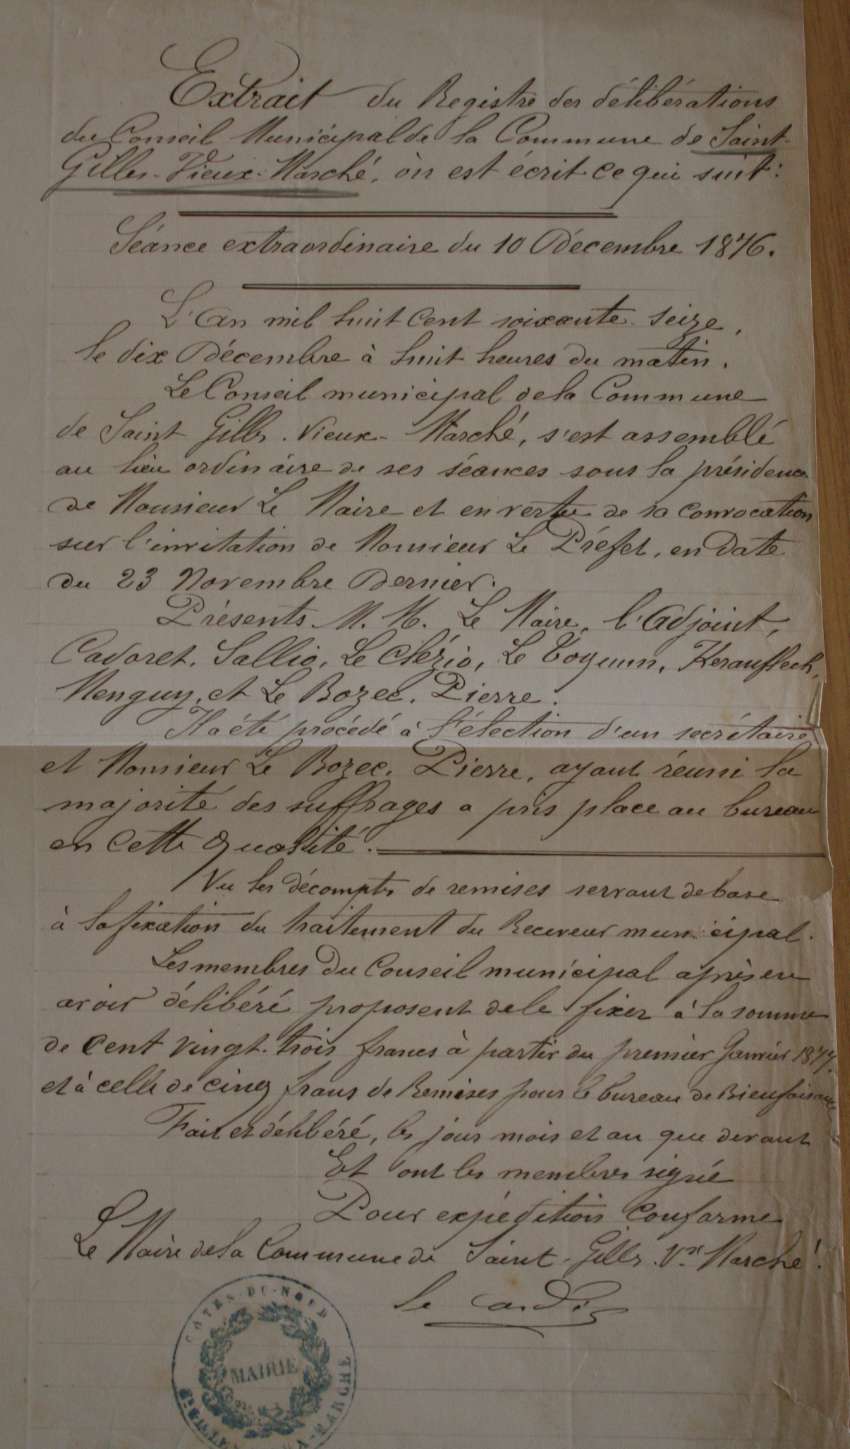 Extrait du Registre des délibérations
du Conseil Municipal de la Commune de Saint-
Gilles-Vieux-Marché, où est écrit ce qui suit:
Séance extraordinaire du 10 Décembre 1876.
L'An mil huit cent soixante-seize,
le dix Décembre à huit heures du matin.
Le Conseil municipal de la Commune
de Saint Gilles-Vieux-Marché, s'est assemblé
au lieu ordinaire de ses séances sous la présidence
de Monsieur Le Maire et en vertu de sa convocation
sur l'invitation de Monsieur Le Préfet, en date
du 23 Novembre Dernier.
Présents M. M. Le Maire, l'Adjoint,
Cadoret, Sallio, Le Clézio, Le Kerauflech,
Menguy, et Le Bozec, Pierre.
Il a été procédé à l'élection d'un secrétaire
et Monsieur Le Bozec, Pierre, ayant réuni la
majorité des suffrages a pris place au bureau
en cette qualité.
Vu les décomptes de remises servant de base
à la fixation du traitement du Receveur municipal.
Les membres du Conseil municipal après en
avoir délibéré proposent de le fixer à la somme
de cent vingt-trois francs à partir du premier Janvier 1877.
et à celle de cinq francs de Remises pour le bureau de Bienfaisance
Fait et délibéré, les jours mois et an que devant
Et ont les membres signé
Pour expédition conforme
Le Maire de la Commune de Saint-Gilles-Vx Marché.
CÔTES-DU-NORD
MAIRIE
MARCHÉ